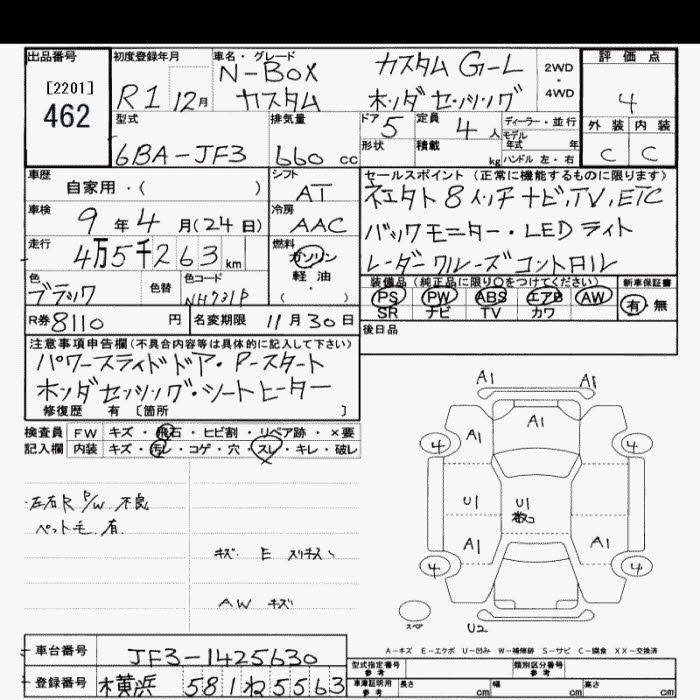 出品番号
[2201]
462
初度登録年月
R1 12月
車名・グレード
N-BOX カスタム G-L
カスタム ホンダセンシング
2WD
・
4WD
評価点
4
外装 内装
C C
型式
6BA-JF3
排気量
660 cc
ドア 5
形状
定員 4 人
積載 kg
ディーラー・並行
モデル
年式 年
ハンドル 左・右
車歴
自家用・( )
シフト
AT
車検
9年4月(24日)
冷房
AAC
走行
4万5千263km
燃料
ガソリン
軽油
・
( )
色
ブラック
色替
色コード
NH731P
セールスポイント(正常に機能するものに限ります)
ネエクト8インチナビ,TV,ETC
バックモニター・LEDライト
レーダークルーズコントロール
装備品(純正品に限り○をつけてください)
PS PW ABS エアB AW
SR ナビ TV カワ
新車保証書
有・無
R券 8110 円
名変期限 11月30日
後日品
注意事項申告欄(不具合内容等は具体的に記入して下さい)
パワースライドドア・P-スタート
ホンダセンシング・シートヒーター
修復歴 有 〔箇所 〕
検査員 FW キズ・飛石・ヒビ割・リペア跡・×要
記入欄 内装 キズ・汚レ・コゲ・穴・スレ・キレ・破レ
左右R P/W 不良
ペット毛 有
キズ E スリキズ
AW キズ
A1 A1
A1 A1
4 4
U1 U1
数コ
A1 A1
4 4
スペア
U2
A-キズ E-エクボ U-凹み W-補修跡 S-サビ C-腐食 XX-交換済
車台番号
JF3-1425630
登録番号
横浜 581ね5563
型式指定番号
参考
類別区分番号
参考
車庫証明用
参考
長さ cm
幅 cm
高さ cm